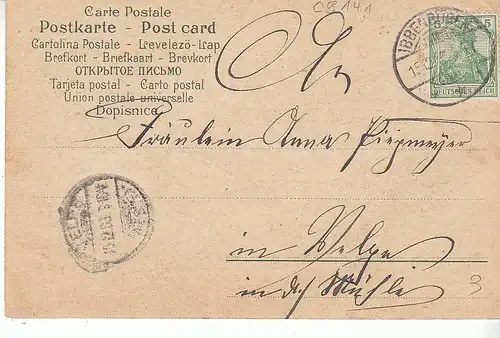 CG141
Carte Postale
Postkarte - Post card
Cartolina Postale - Levelező-Lap
Brefkort - Briefkaart - Brevkort
ОТКРЫТОЕ ПИСЬМО
Tarjeta postal - Carto postal
Union postale universelle
Dopisnice
IBBENBÜREN
15.12.
5
DEUTSCHES REICH
An
Fräulein Anna Piepmeyer
in Velpe
in der Mühle
3